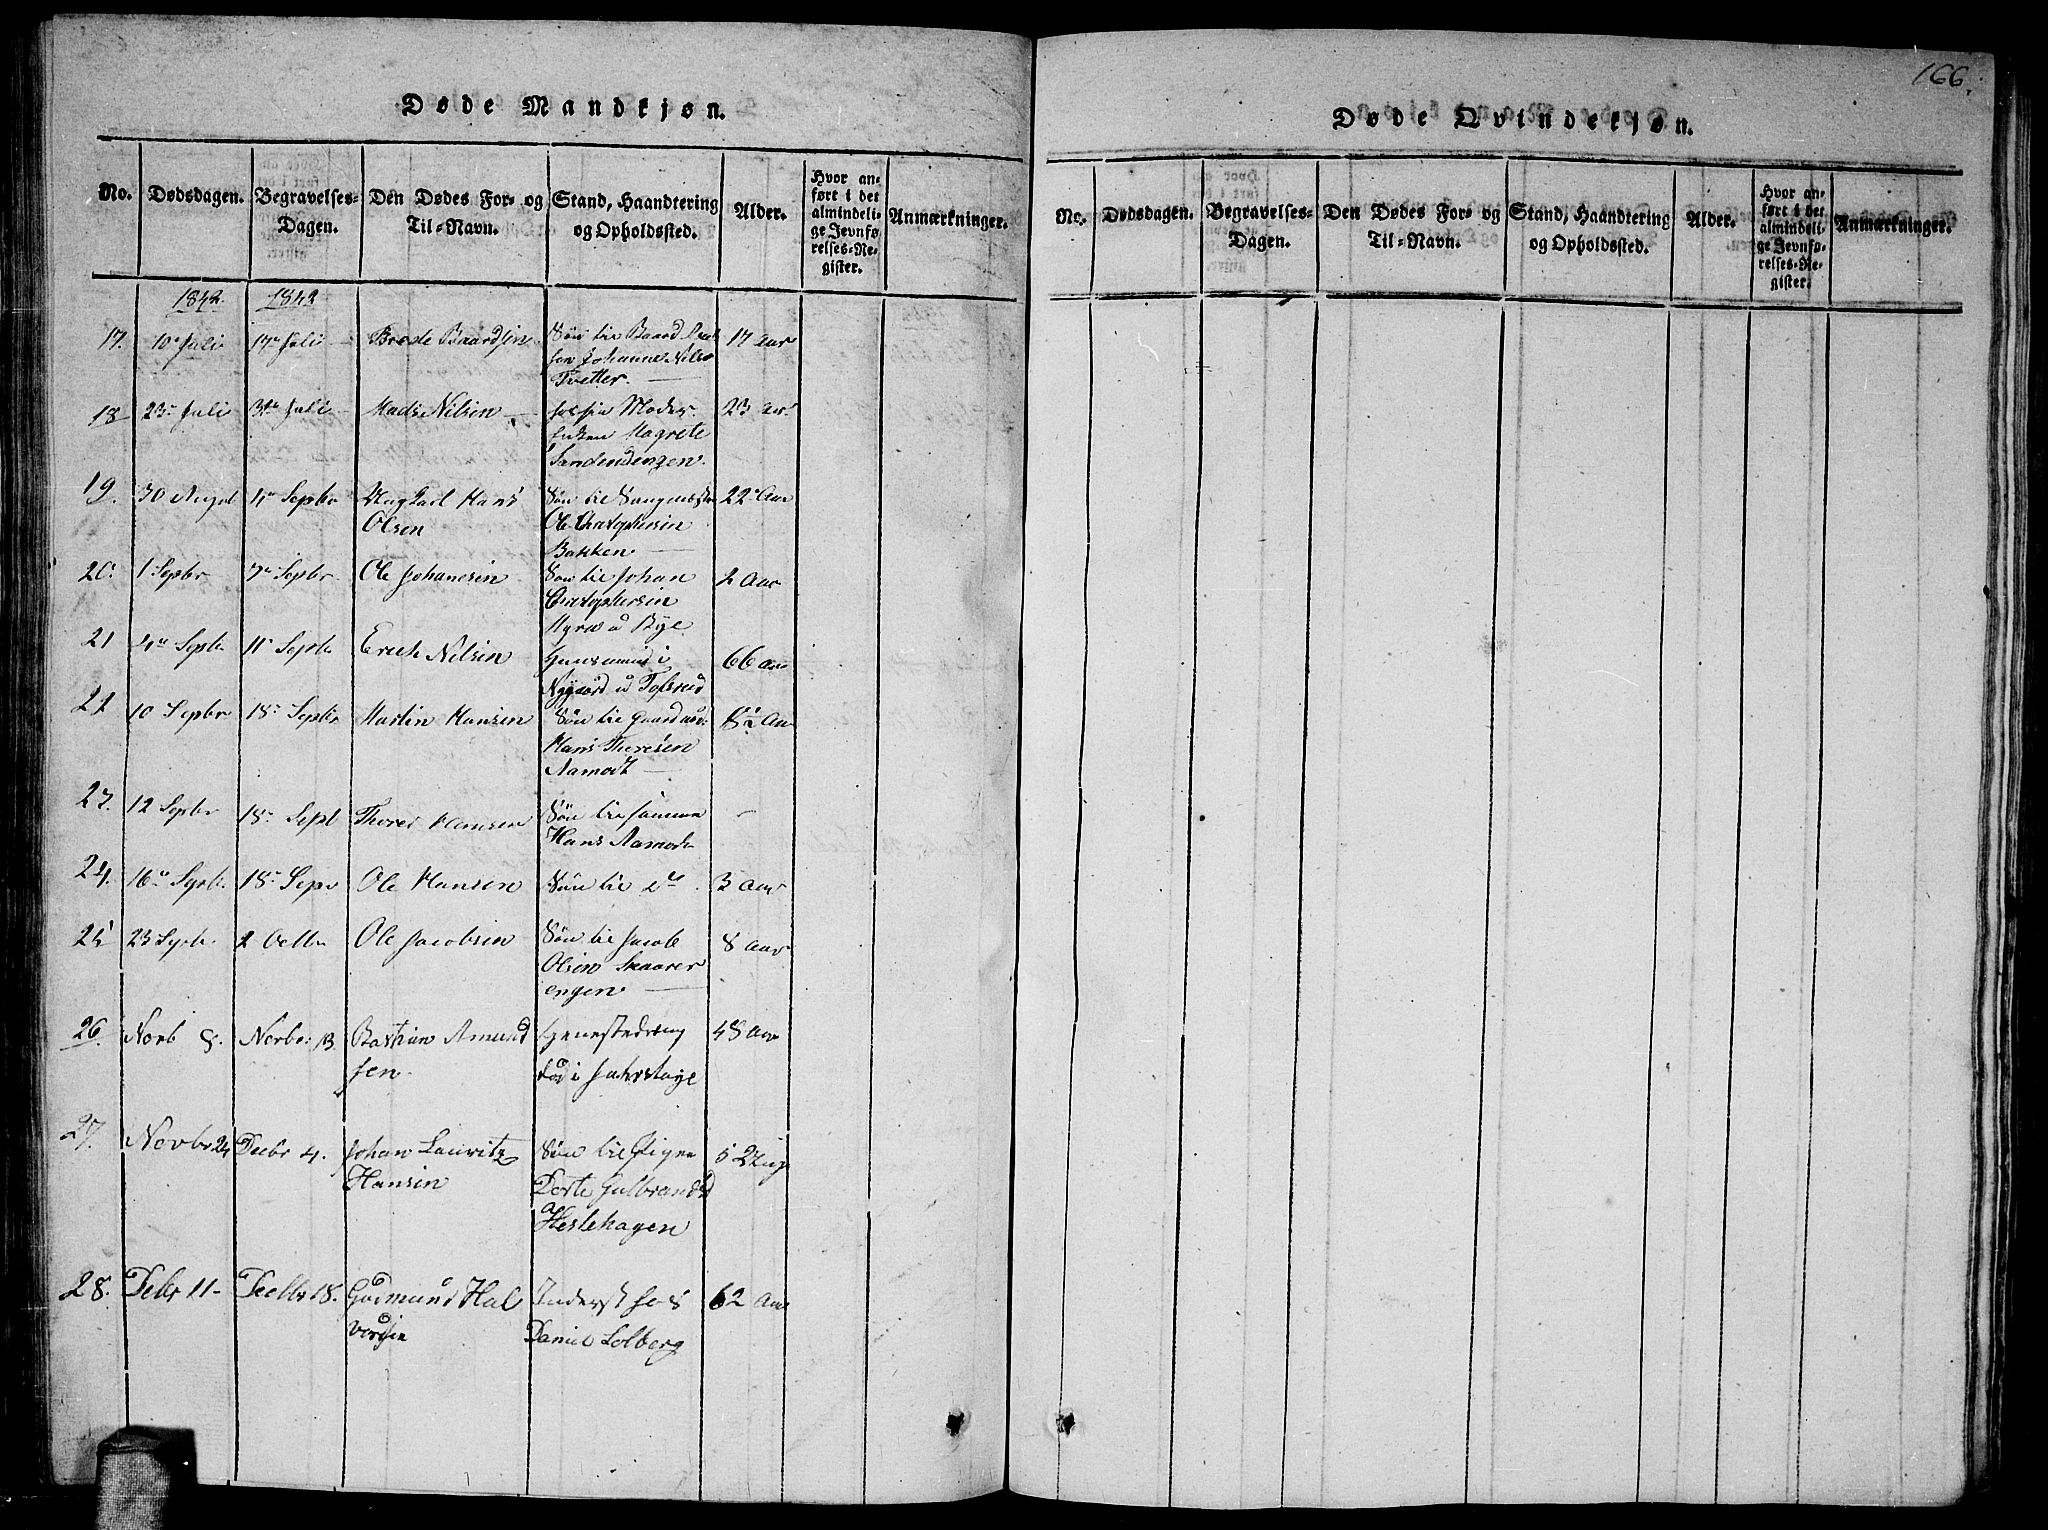 166.
Døde Mandkjøn.
No. Dødsdagen. Begravelses-Dagen. Den Dødes For- og Til-Navn. Stand, Haandtering og Opholdssted. Alder. Hvor anført i det almindelige Jevnførelses-Register. Anmærkninger.
1842. 1842
17. 10 Juli 17 Juli Brede Baardsen Søn til Baard 17 aar
Johanne Nils
Tvetter.
18 23 Juli 31 Juli Mads Nilsen Moder 23 ar
Magrete
Sandenengen.
19. 30 Augst 4 Septbr Hans Søn til 22 Aar
Olsen Ole Christophersen
Bakken
20. 1 Septbr 7 Septbr Ole Johanesen Søn til Johan 2 Aar
Christophersen
Myra u Bye
21 4 Septb 11 Septb Erich Nilsen Huusmand i 66 aar
Nygaard u Tofsrud
22 10 Septbr 18 Septbr Martin Hansen Søn til Gaardmd
Hans Thoresen
Aamodt
23. 12 Septbr 18 Sept Thorer Hansen Søn til samme -
Hans Aamodt
24. 16 Septb. 18 Sepb Ole Hansen Søn til do 3 Aar
25 23 Septb. 2 Octb Ole Jacobsen Søn til Jacob 8 aar
Olsen Skaarer
engen
26. Novb 8. Novbr 13 Bastian Amund 48 Aar
sen. død i
27. Novbr 24 Decbr 4. Johan Lauritz Søn til Pigen 5
Hansen Dorte Gulbrandsd
Heslehagen
28. Debr 11 Decbr 18. Gudmund Hal Inderst hos 62 Aar
vorsen Daniel Solberg
Døde Qvindekjøn.
No. Dødsdagen. Begravelses-Dagen. Den Dødes For- og Til-Navn. Stand, Haandtering og Opholdssted. Alder. Hvor anført i det almindelige Jevnførelses-Register. Anmærkninger.